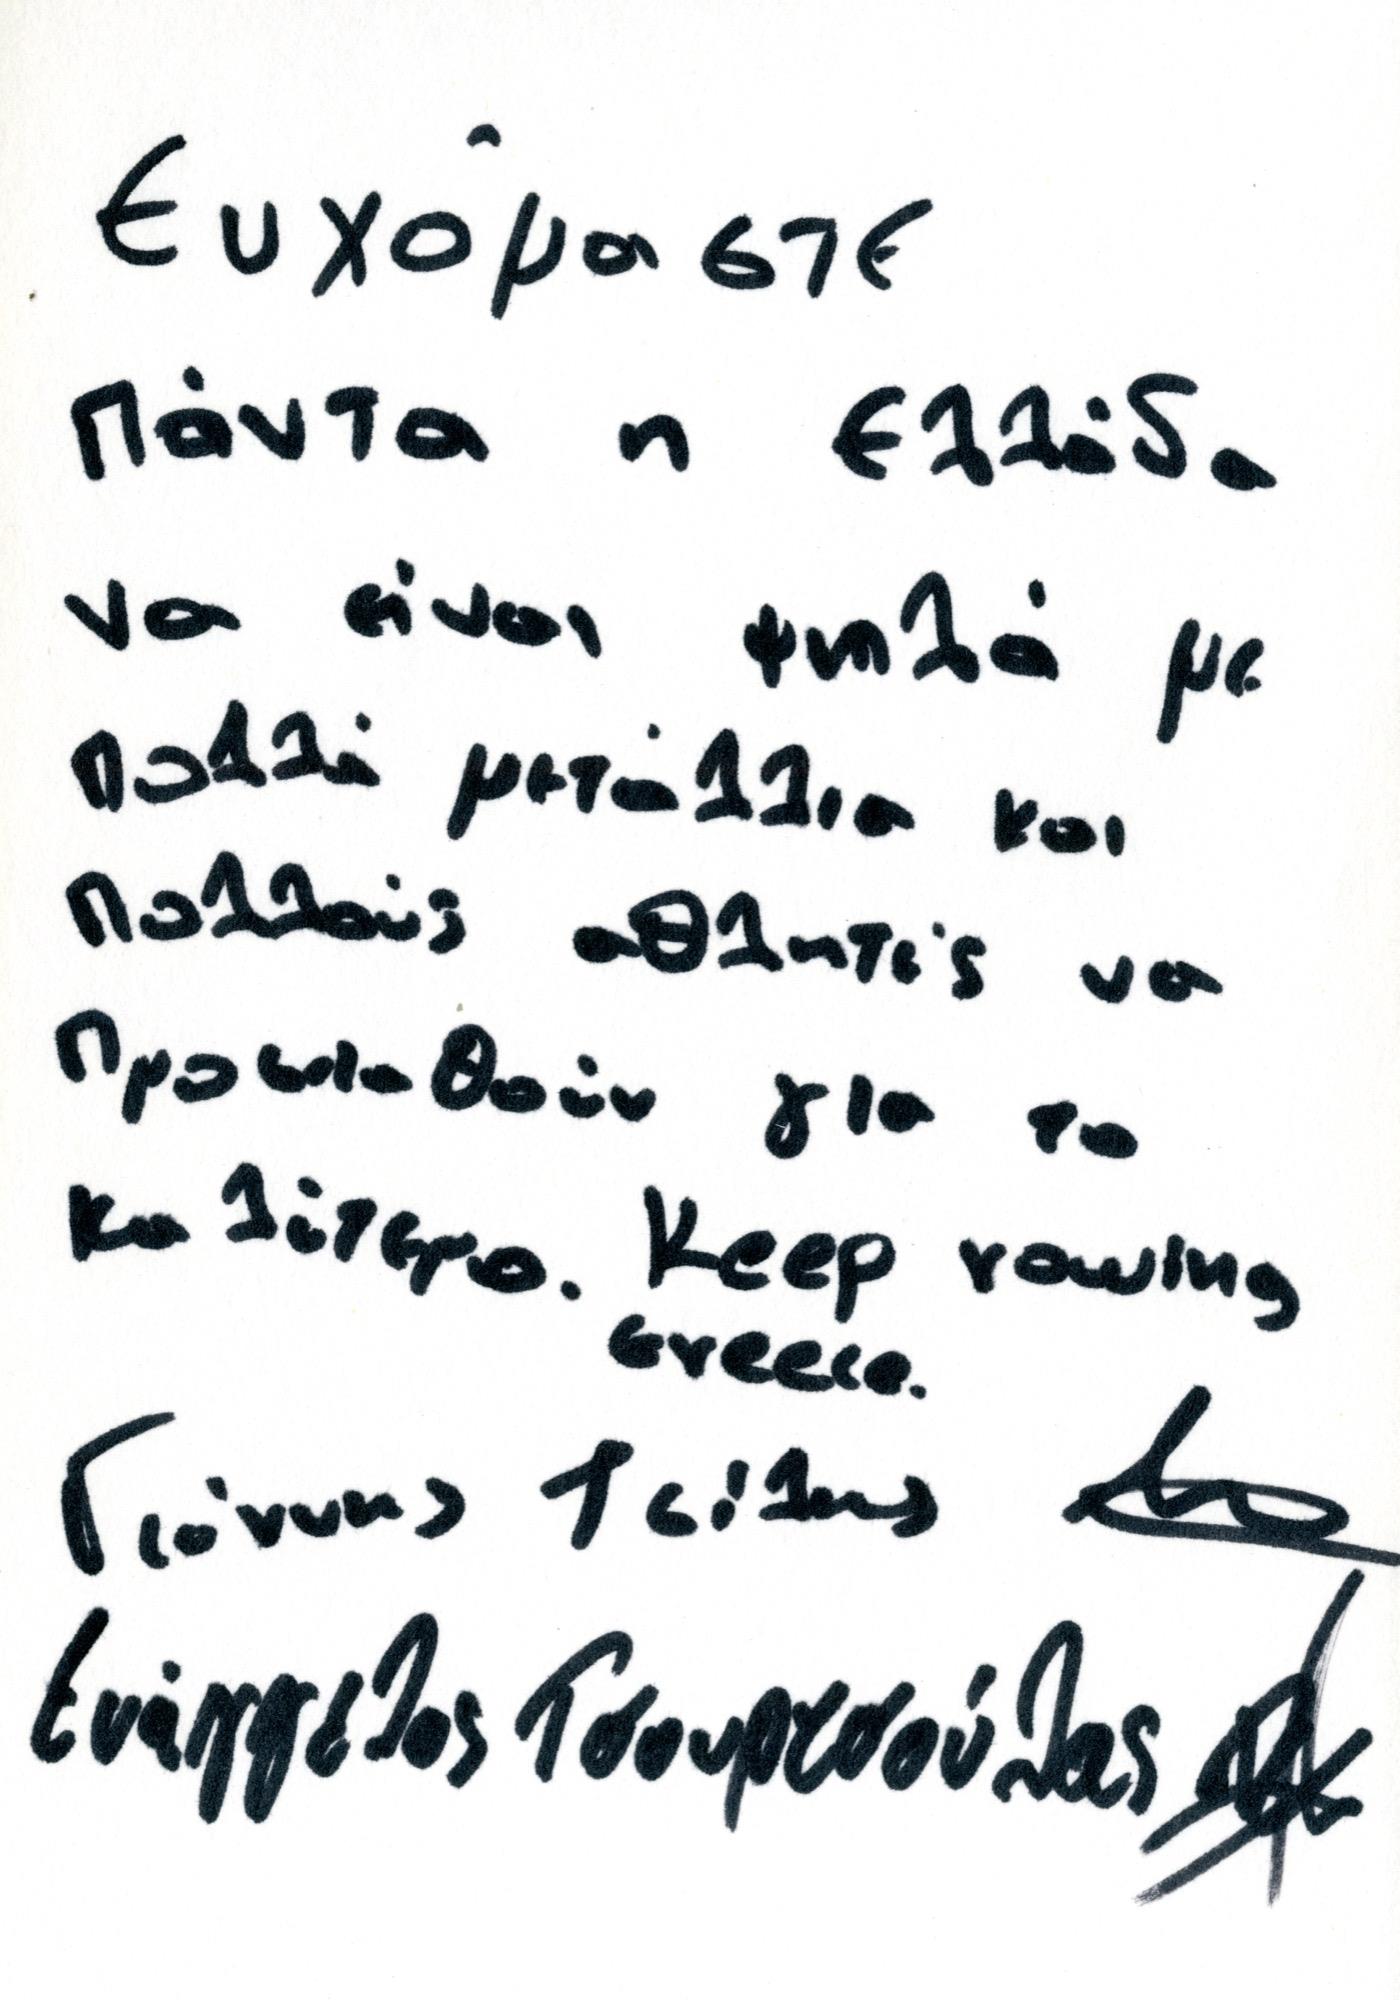 Ευχόμαστε
Πάντα η Ελλάδα
να είναι ψηλά με
πολλά μετάλλια και
πολλούς αθλητές να
προσπαθούν για το
καλύτερο. Keep rowing
Greece.
Γιάννης Τσίλης
Ευάγγελος Τσουρτσούλας